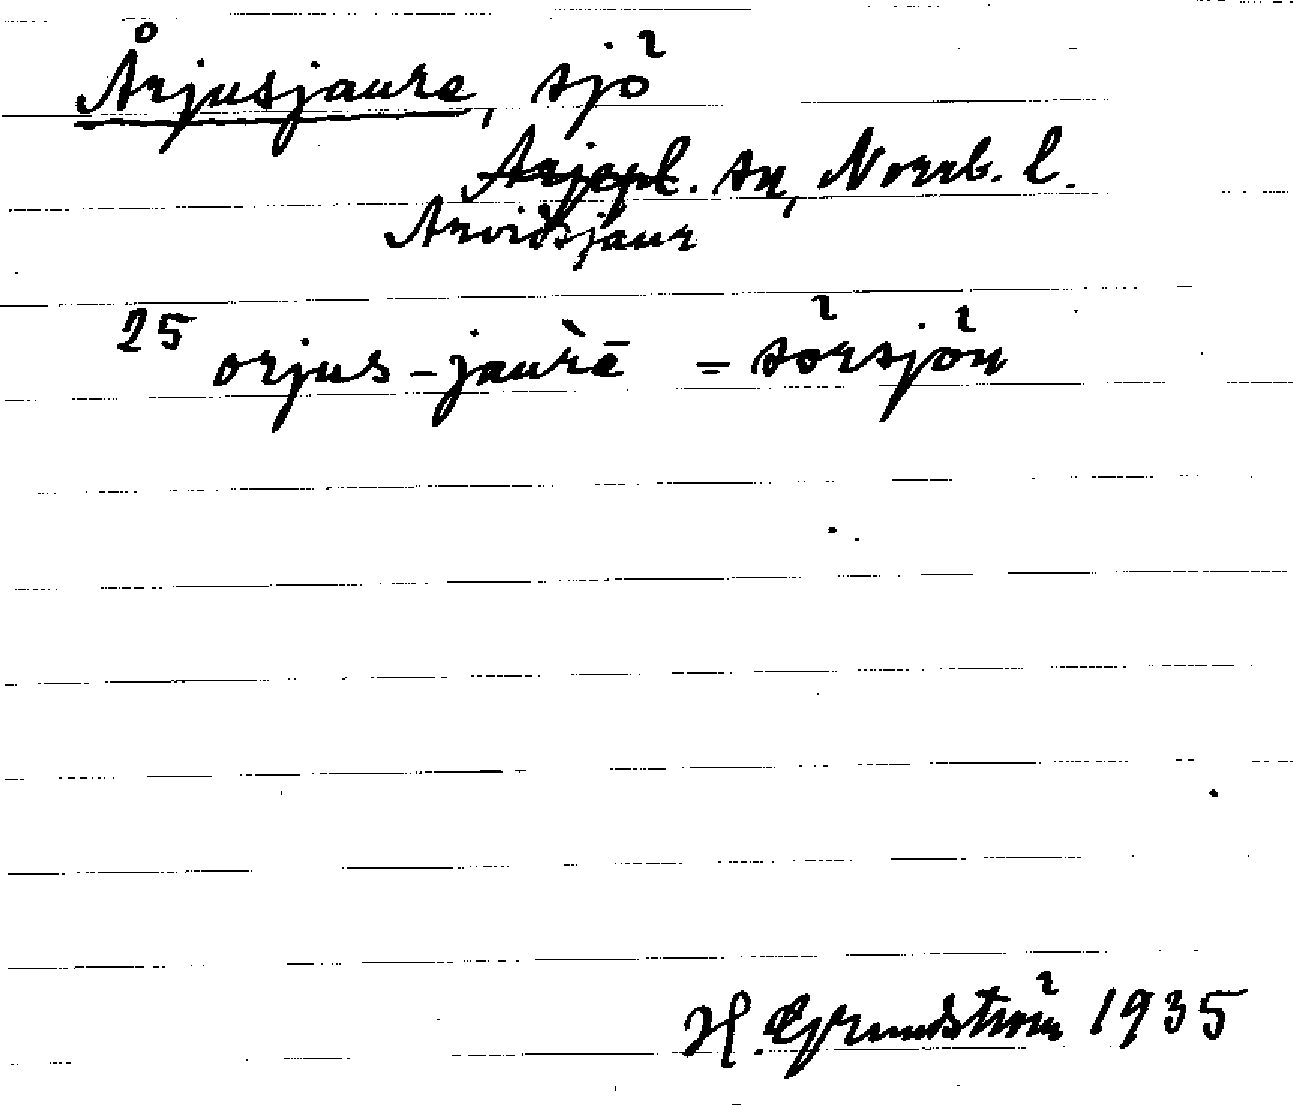 Årjusjaure, sjö
Arjepl. sn, Norrb. l.
Arvidsjaur
25 orjus-jau̇̀rē = sörsjön
H. Grundström 1935